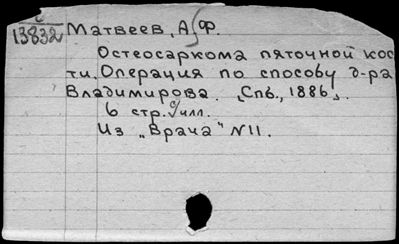 13832 Матвеев, А. Ф.
Остеосаркома пяточной кос
ти. Операция по способу д-ра
Владимирова. „Спб., 1886„.
6 стр. с/илл.
Из „Врача" N11.